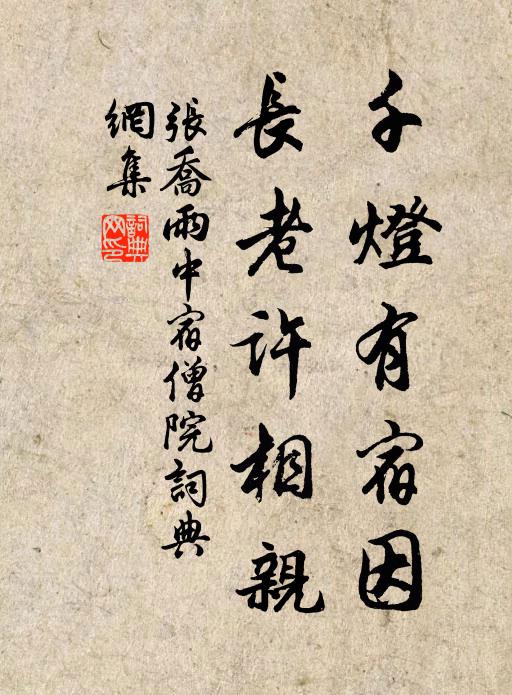 千燈有宿因
長老許相親
張喬雨中宿僧院詞典
網集
詞典
网印